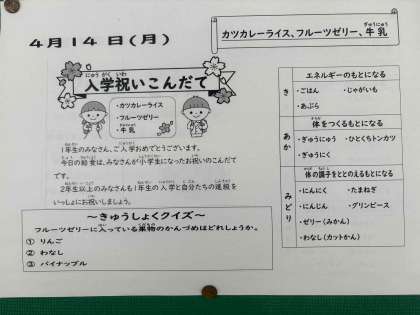 4月14日(月)
カツカレーライス、フルーツゼリー、牛乳
ぎゅうにゅう
にゅうがくいわ
入学祝いこんだて
・カツカレーライス
・フルーツゼリー
・牛乳
1年生のみなさん、ご入学おめでとうございます。
今日の給食は、みなさんが小学生になったお祝いのこんだて
です。
2年生以上のみなさんも1年生の入学と自分たちの進級を
いっしょにお祝いしましょう。
～きゅうしょくクイズ～
フルーツゼリーに入っている果物のかんづめはどれしょうか。
① りんご
② わなし
③ パイナップル
エネルギーのもとになる
き
・ごはん ・じゃがいも
・あぶら
体をつくるもとになる
あか
・ぎゅうにゅう ・ひとくちトンカツ
・ぎゅうにく
体の調子をととのえるもとになる
みどり
・にんにく ・たまねぎ
・にんじん ・グリンピース
・ゼリー(みかん)
・わなし(カットかん)